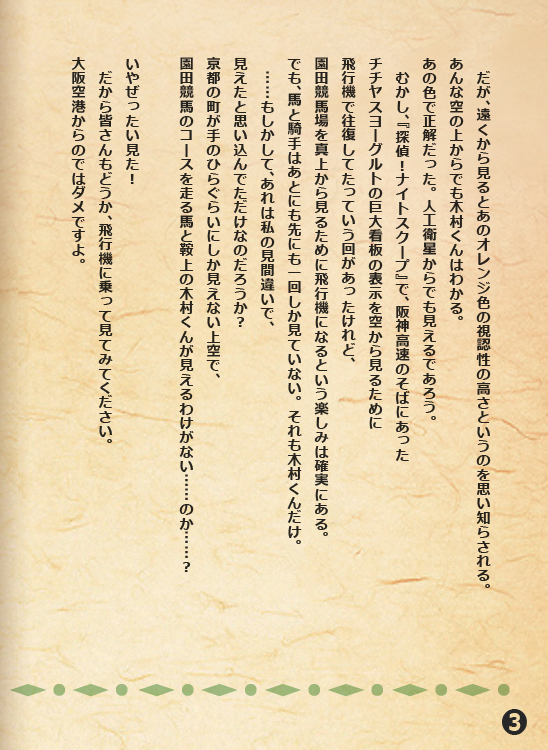 だが、遠くから見るとあのオレンジ色の視認性の高さというのを思い知らされる。
あんな空の上からでも木村くんはわかる。
あの色で正解だった。人工衛星からでも見えるであろう。
むかし、『探偵！ナイトスクープ』で、阪神高速のそばにあった
チチヤスヨーグルトの巨大看板の表示を空から見るために
飛行機で往復してたっていう回があったけれど、
園田競馬場を真上から見るために飛行機になるという楽しみは確実にある。
でも、馬と騎手はあとにも先にも一回しか見ていない。それも木村くんだけ。
……もしかして、あれは私の見間違いで、
見えたと思い込んでただけなのだろうか？
京都の町が手のひらぐらいにしか見えない上空で、
園田競馬のコースを走る馬と鞍上の木村くんが見えるわけがない……のか……？
いやぜったい見た！
だから皆さんもどうか、飛行機に乗って見てみてください。
大阪空港からのではダメですよ。
3